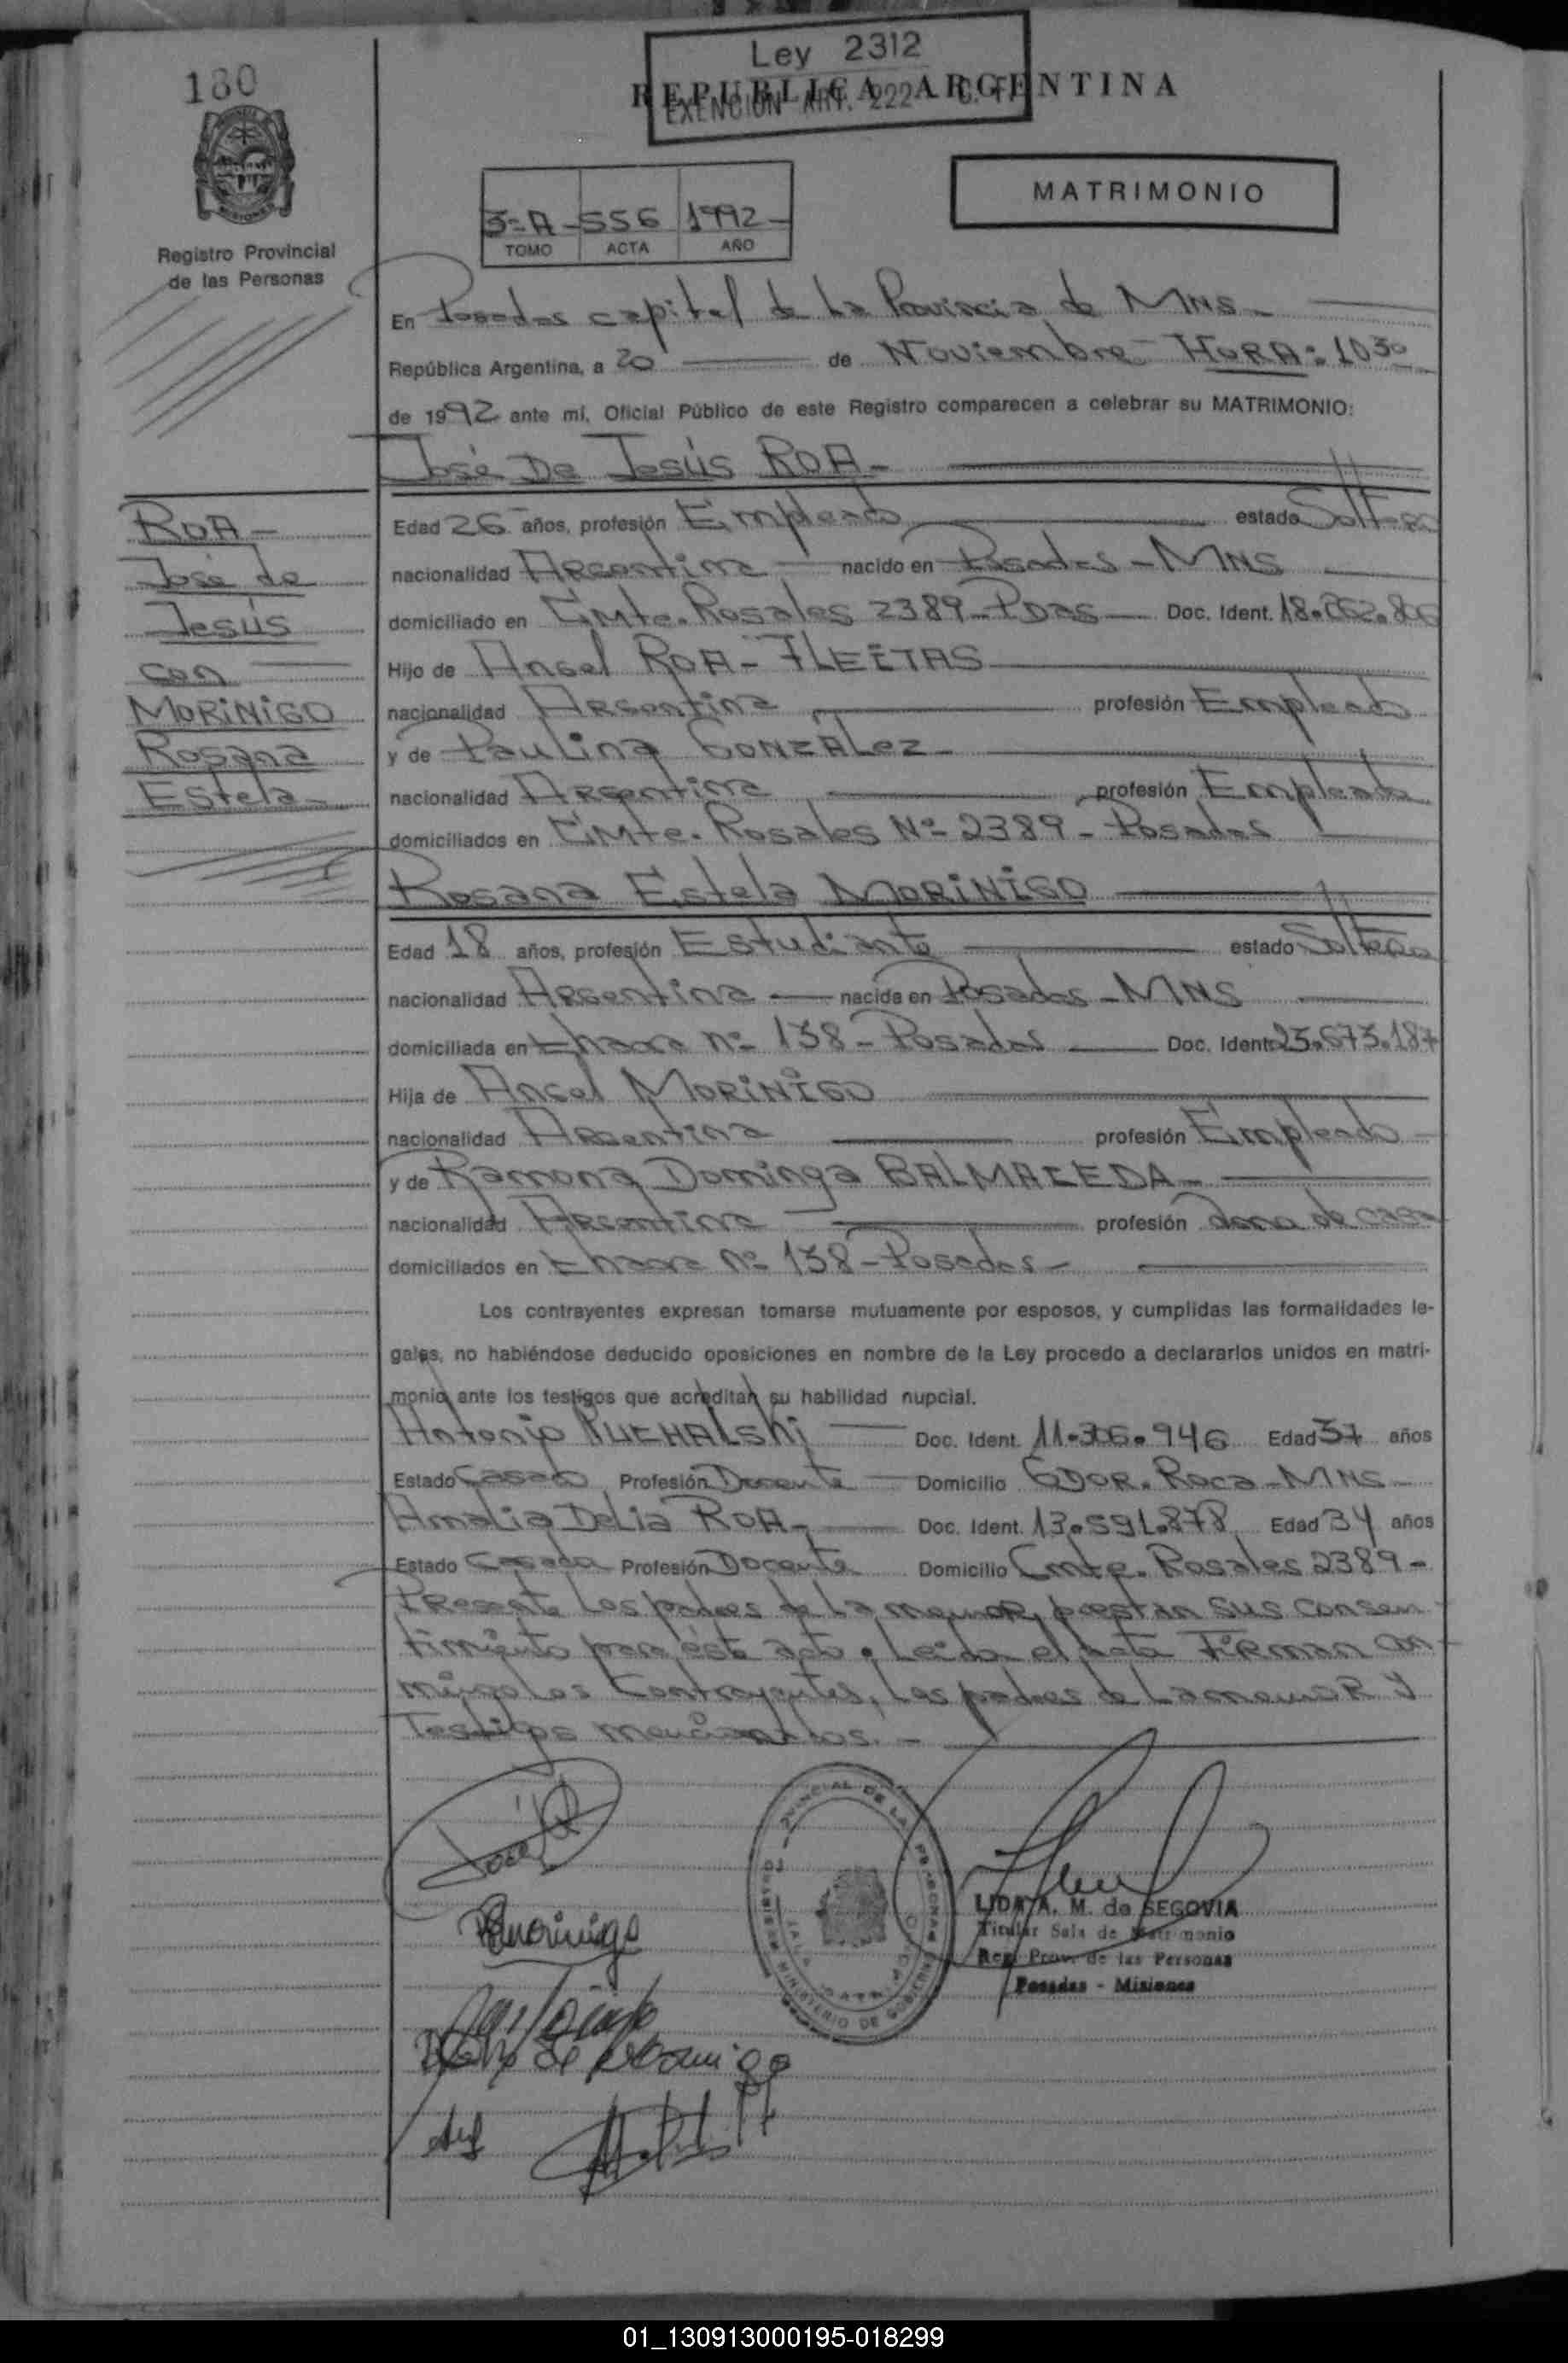 180
Ley 2312
REPUBLICA ARGENTINA
EXENCION ART. 222 - C. F.
MATRIMONIO
3=A - 556 1992 -
TOMO ACTA AÑO
Registro Provincial
de las Personas
En Posadas capital de La Provincia de MNS -
República Argentina, a 20 de Noviembre - HORA: 10 30
de 1992 ante mi, Oficial Público de este Registro comparecen a celebrar su MATRIMONIO:
José De Jesús ROA -
ROA -
José de
Jesús
con
MORINIGO
Rosana
Estela -
Edad 26 años, profesión Empleado estado Soltero
nacionalidad Argentina nacido en Posadas - MNS
domiciliado en Cmte. Rosales 2389 - PDAS Doc. Ident.
Hijo de Angel ROA - FLEITAS
nacionalidad Argentina profesión Empleado
y de Paulina GONZALEZ -
nacionalidad Argentina profesión Empleada
domiciliados en Cmte. Rosales Nº 2389 - Posadas
Rosana Estela MORINIGO
Edad 18 años, profesión Estudiante estado Soltera
nacionalidad Argentina nacida en Posadas - MNS
domiciliada en nº 138 - Posadas Doc. Ident. 23.673.187
Hija de Angel MORINIGO
nacionalidad Argentina profesión Empleado -
y de Ramona Dominga BALMACEDA -
nacionalidad Argentina profesión dona de casa
domiciliados en nº 138 - Posadas -
Los contrayentes expresan tomarse mutuamente por esposos, y cumplidas las formalidades le-
gales, no habiéndose deducido oposiciones en nombre de la Ley procedo a declararlos unidos en matri-
monio ante los testigos que acreditan su habilidad nupcial.
Antonio PUCHALSKI Doc. Ident. 11.306.946 Edad 37 años
Estado Casado Profesión Docente Domicilio GDOR. Roca - MNS -
Amalia Delia ROA - Doc. Ident. 13.591.878 Edad 34 años
Estado Casada Profesión Docente Domicilio Cmte. Rosales 2389 -
Presente Los padres de La menor, prestan sus consen
timiento para éste acto. Leida el acta Firman con
migo Los Contrayentes, Los padres de La menor y
Testigos mencionados. -
José R
RMorinigo
REGISTRO PROVINCIAL DE LAS PERSONAS
MINISTERIO DE GOBIERNO
LIDA A. M. de SEGOVIA
Titular Sala de Matrimonio
Reg. Prov. de las Personas
Posadas - Misiones
01_130913000195-018299